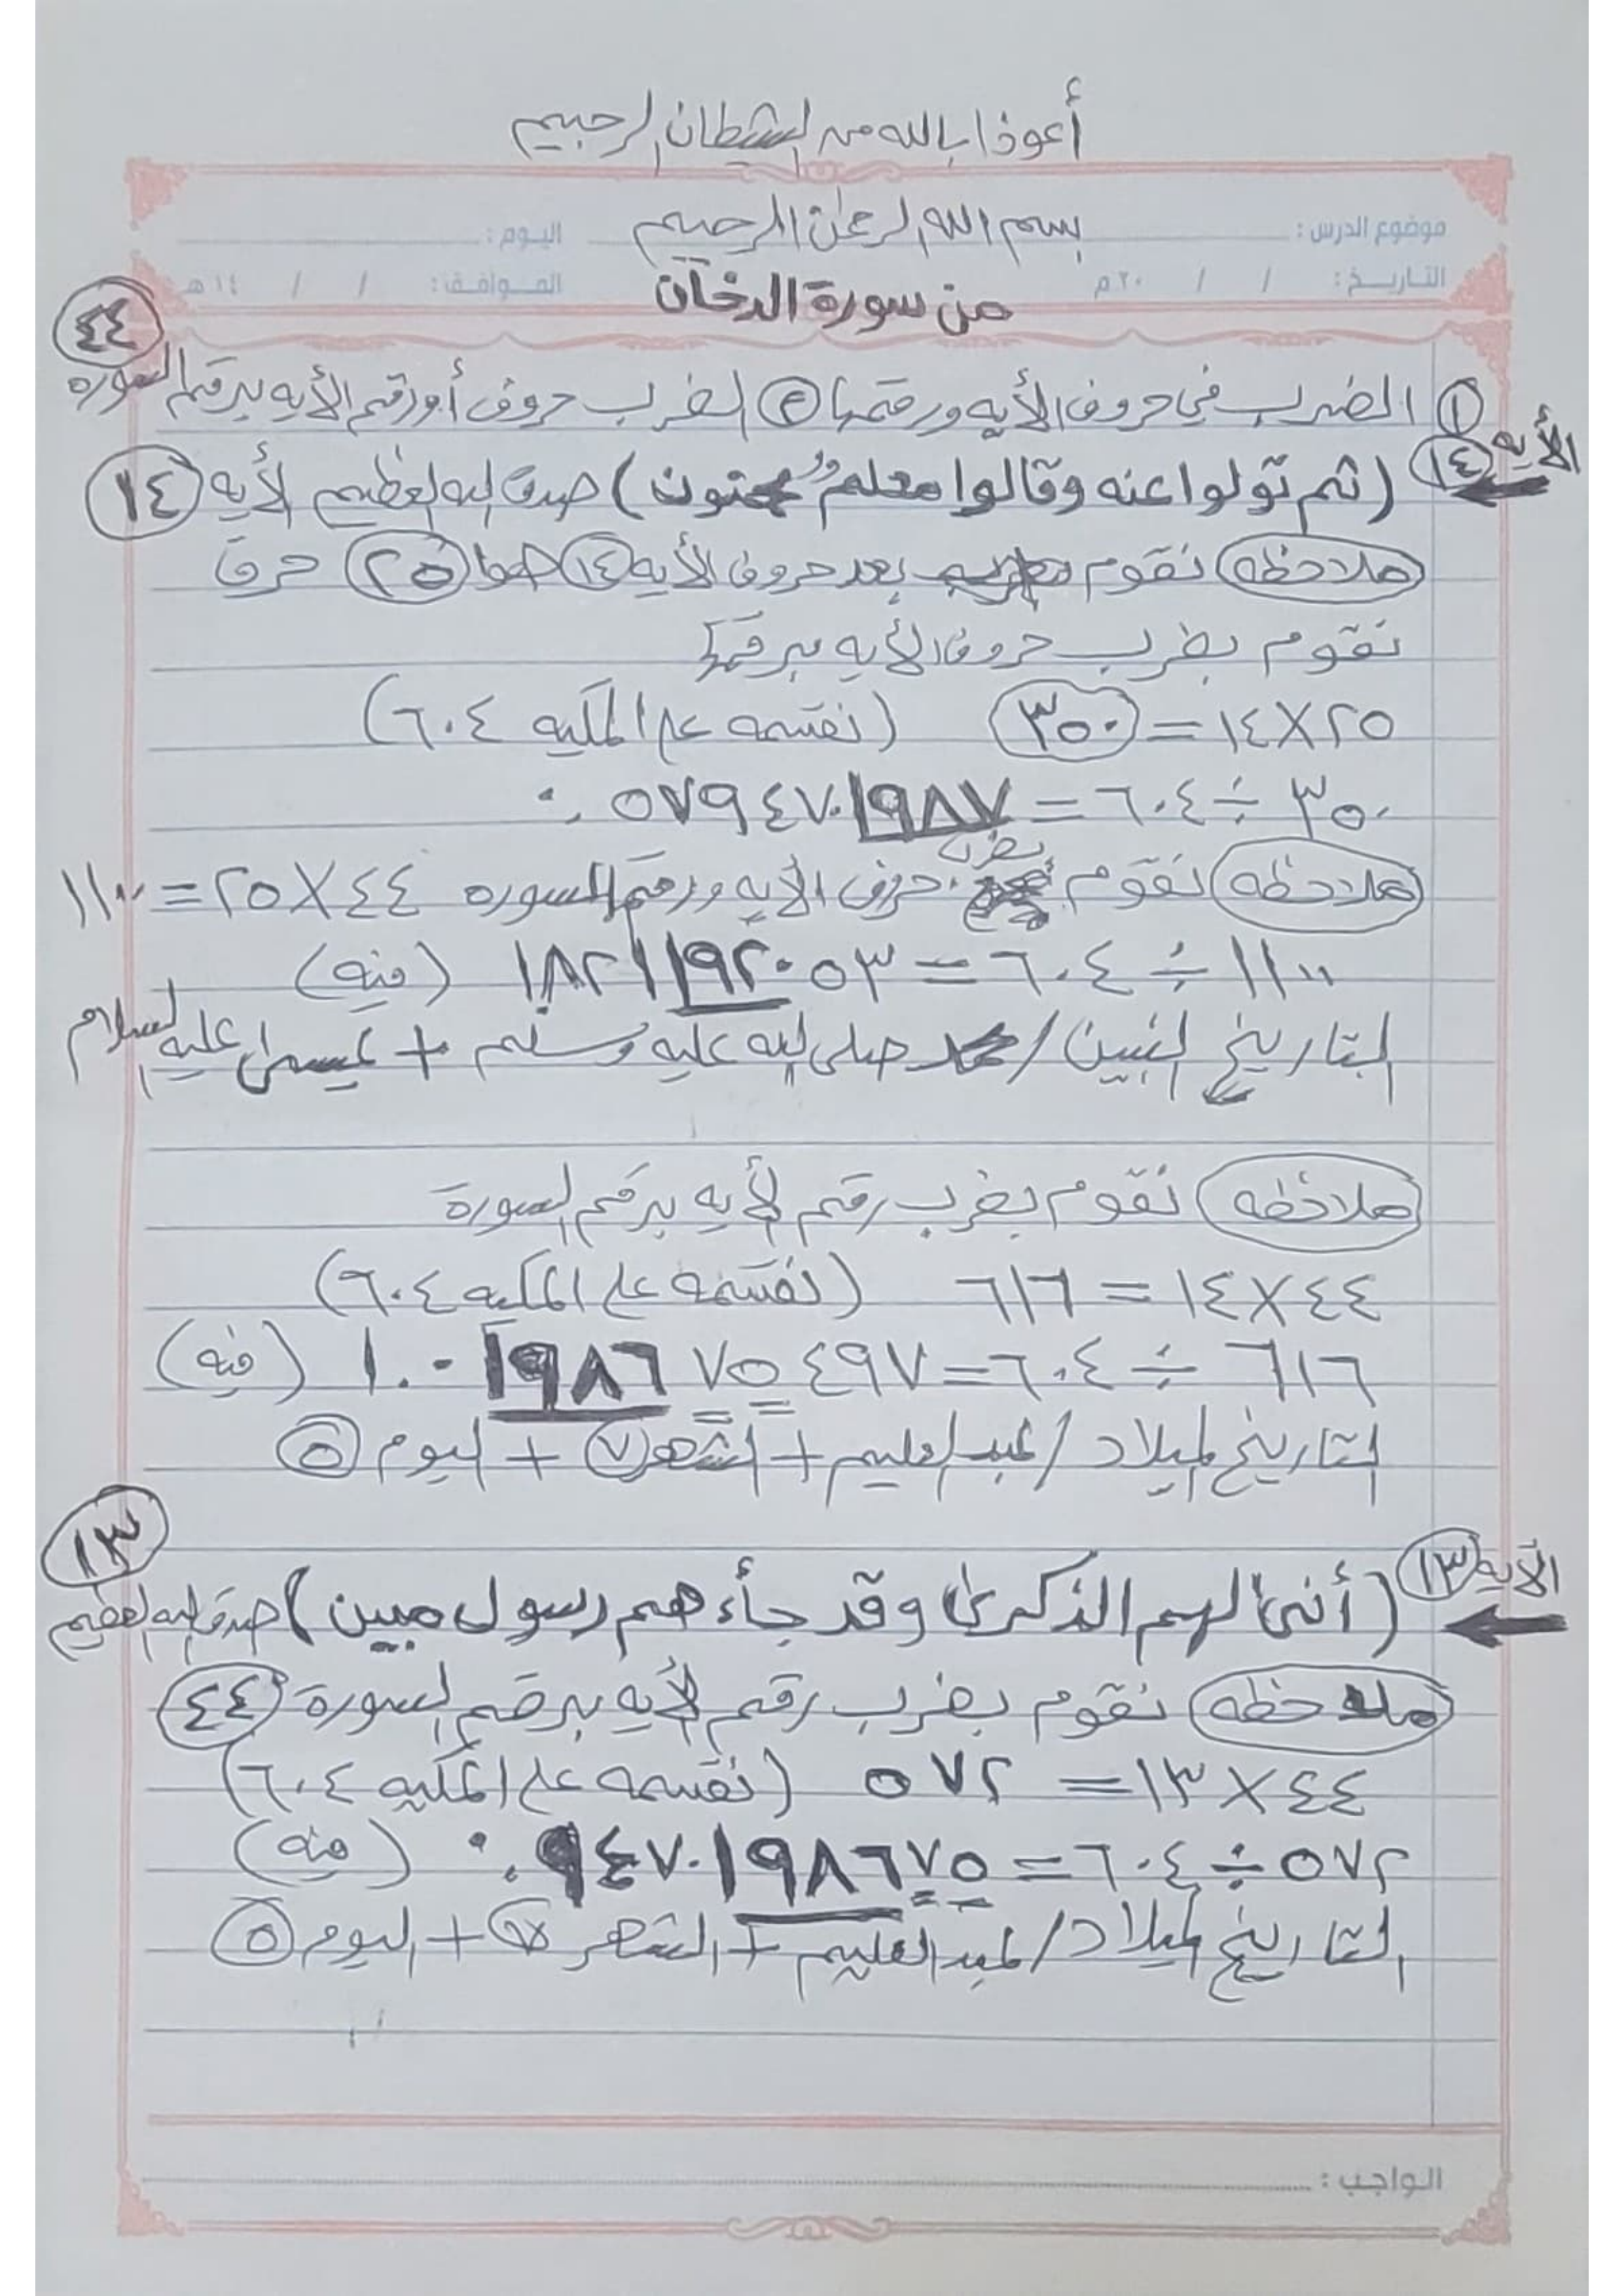 أعوذ بالله من الشيطان الرجيم
موضوع الدرس : بسم الله الرحمن الرحيم اليوم :
التاريخ : / / ٢٠م الموافق : / / ١٤هـ
من سورة الدخان
٤٤
١ الضرب في حروف الأيه ورقمها ٢ الضرب حروف أو رقم الأيه برقم السوره
الأيه ١٤ (ثم تولوا عنه وقالوا معلم مجنون) صدق الله العظيم الأيه ١٤
ملاحظه نقوم بعد حروف الأيه ١٤ ٢٥ حرف
نقوم بظرب حروف الأيه برقمها
٢٥×١٤=٣٥٠ (نقسمه على المكيه ٦٠٤)
٣٥٠÷٦٠٤=٠.٥٧٩٤٧٠١٩٨٧
ملاحظه نقوم بضرب حروف الأيه ورقم السوره ٤٤×٢٥=١١٠٠
١١٠٠÷٦٠٤=١.٨٢١١٩٢٠٥٣ (منه)
التاريخ النبين / محمد صلى الله عليه وسلم + عيسى عليه السلام
ملاحظه نقوم بضرب رقم الأيه برقم السورة
٤٤×١٤=٦١٦ (نقسمه على المكيه ٦٠٤)
٦١٦÷٦٠٤=١.٠١٩٨٦٧٥٤٩٧ (منه)
التاريخ لميلاد / عبد العليم + الشهر ٧ + اليوم ٥
١٣
الآيه ١٣ (أنى لهم الذكرى وقد جأءهم رسول مبين) صدق الله العظيم
ملاحظه نقوم بضرب رقم الأيه برقم السورة ٤٤
٤٤×١٣=٥٧٢ (نقسمه على المكيه ٦٠٤)
٥٧٢÷٦٠٤=٠.٩٤٧٠١٩٨٦٧٥ (منه)
التاريخ لميلاد / عبد العليم + الشهر ٧ + اليوم ٥
الواجب :